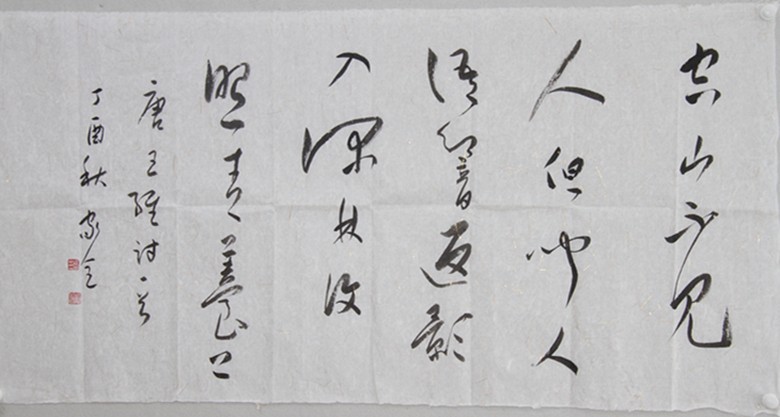 空山不见
人但闻人
语響返影
入深林復
照青上
唐王維诗一首
丁酉秋家